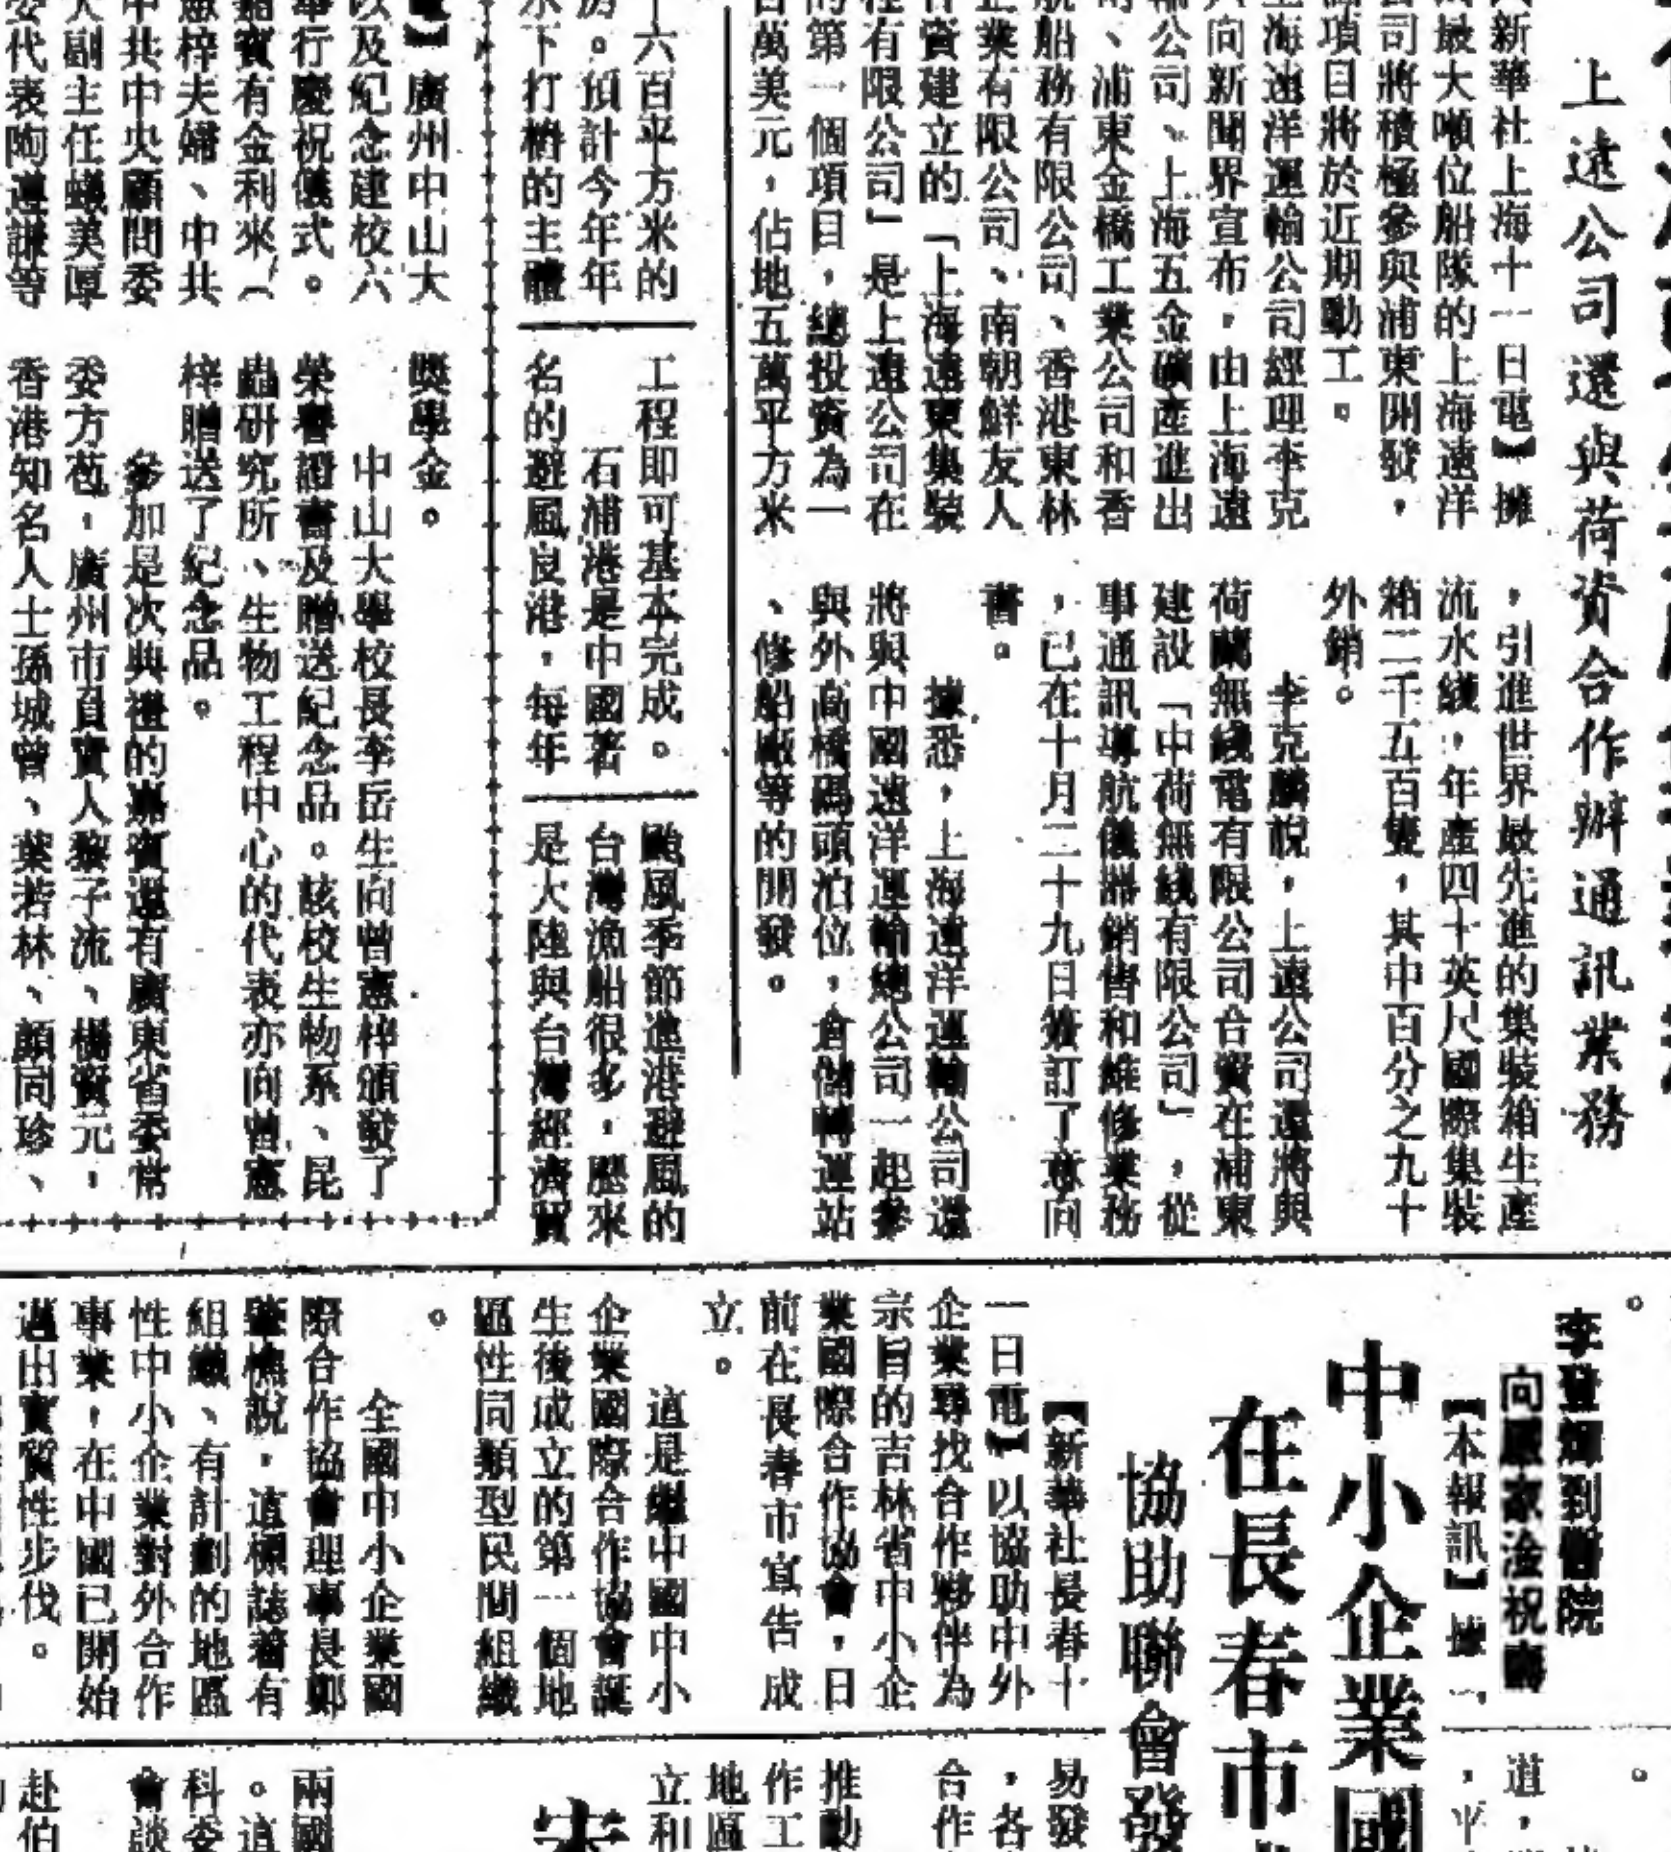 上遠公司還與荷資合作辦通訊業務
新華社上海十一日電】擁
最大噸位船隊的上海遠洋
公司將積極參與浦東開發,
項目將於近期動工。
上海遠洋運輸公司經理李克
向新聞界宣布,由上海遠
輸公司、上海五金礦產進出
、浦東金橋工業公司和香
航船務有限公司、香港東林
企業有限公司、南朝鮮友人
合資建立的「上海遠東集裝
程有限公司」是上遠公司在
的第一個項目,總投資為一
百萬美元,佔地五萬平方米
,引進世界最先進的集裝箱生產
流水綫,年產四十英尺國際集裝
箱二千五百隻,其中百分之九十
外銷。
李克麟說,上遠公司還將與
荷蘭無綫電有限公司合資在浦東
建設「中荷無綫有限公司」,從
事通訊導航儀器銷售和維修業務
,已在十月二十九日簽訂了意向
書。
據悉,上海遠洋運輸公司還
將與中國遠洋運輸總公司一起參
與外高橋碼頭泊位,倉儲轉運站
、修船廠等的開發。
十六百平方米的
房。預計今年年
水下打樁的主體
工程即可基本完成。
石浦港是中國著
名的避風良港,每年
颱風季節進港避風的
台灣漁船很多,歷來
是大陸與台灣經濟貿
】廣州中山大
以及紀念建校六
舉行慶祝儀式。
嘉賓有金利來(
憲梓夫婦、中共
中共中央顧問委
大副主任蟻美厚
委代表陶遵謙等
獎學金。
中山大學校長李岳生向曾憲梓頒發了
榮譽證書及贈送紀念品。該校生物系、昆
蟲研究所、生物工程中心的代表亦向曾憲
梓贈送了紀念品。
參加是次典禮的嘉賓還有廣東省委常
委方苞,廣州市負責人黎子流、楊資元,
香港知名人士孫城曾、葉若林、顏同珍、
李登輝到醫院
向嚴家淦祝壽
【本報訊】據
道,
中小企業國
在長春市
協助聯會發
【新華社長春十
一日電】以協助中外
企業尋找合作夥伴為
宗旨的吉林省中小企
業國際合作協會,日
前在長春市宣告成
立。
這是繼中國中小
企業國際合作協會誕
生後成立的第一個地
區性同類型民間組織
。
全國中小企業國
際合作協會理事長鄭
說,這標誌着有
組織、有計劃的地區
性中小企業對外合作
事業,在中國已開始
邁出實質性步伐。
易發
,各
合作
推動
作工
地區
立和
宋
兩國
。這
科委
會談
赴伯